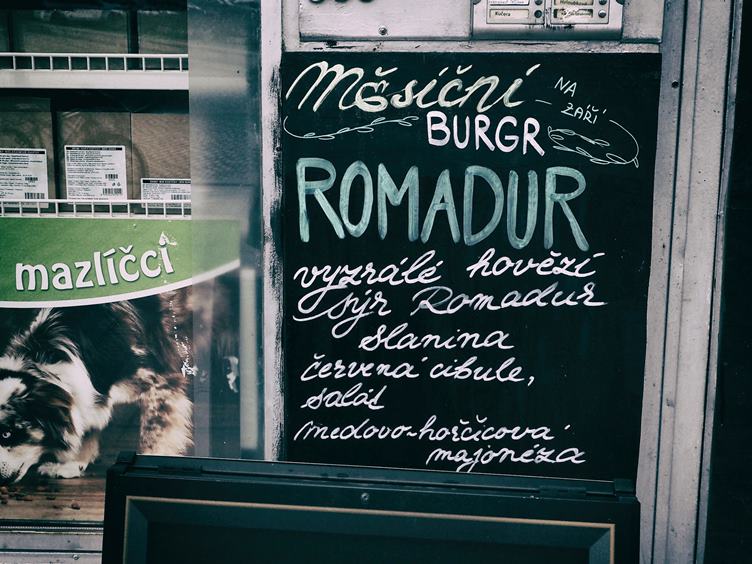 Kučera
Měsíční
NA
ZÁŘÍ
BURGR
ROMADUR
vyzrálé hovězí
sýr Romadur
slanina
červená cibule,
salát
medovo-hořčicová
majonéza
mazlíčci